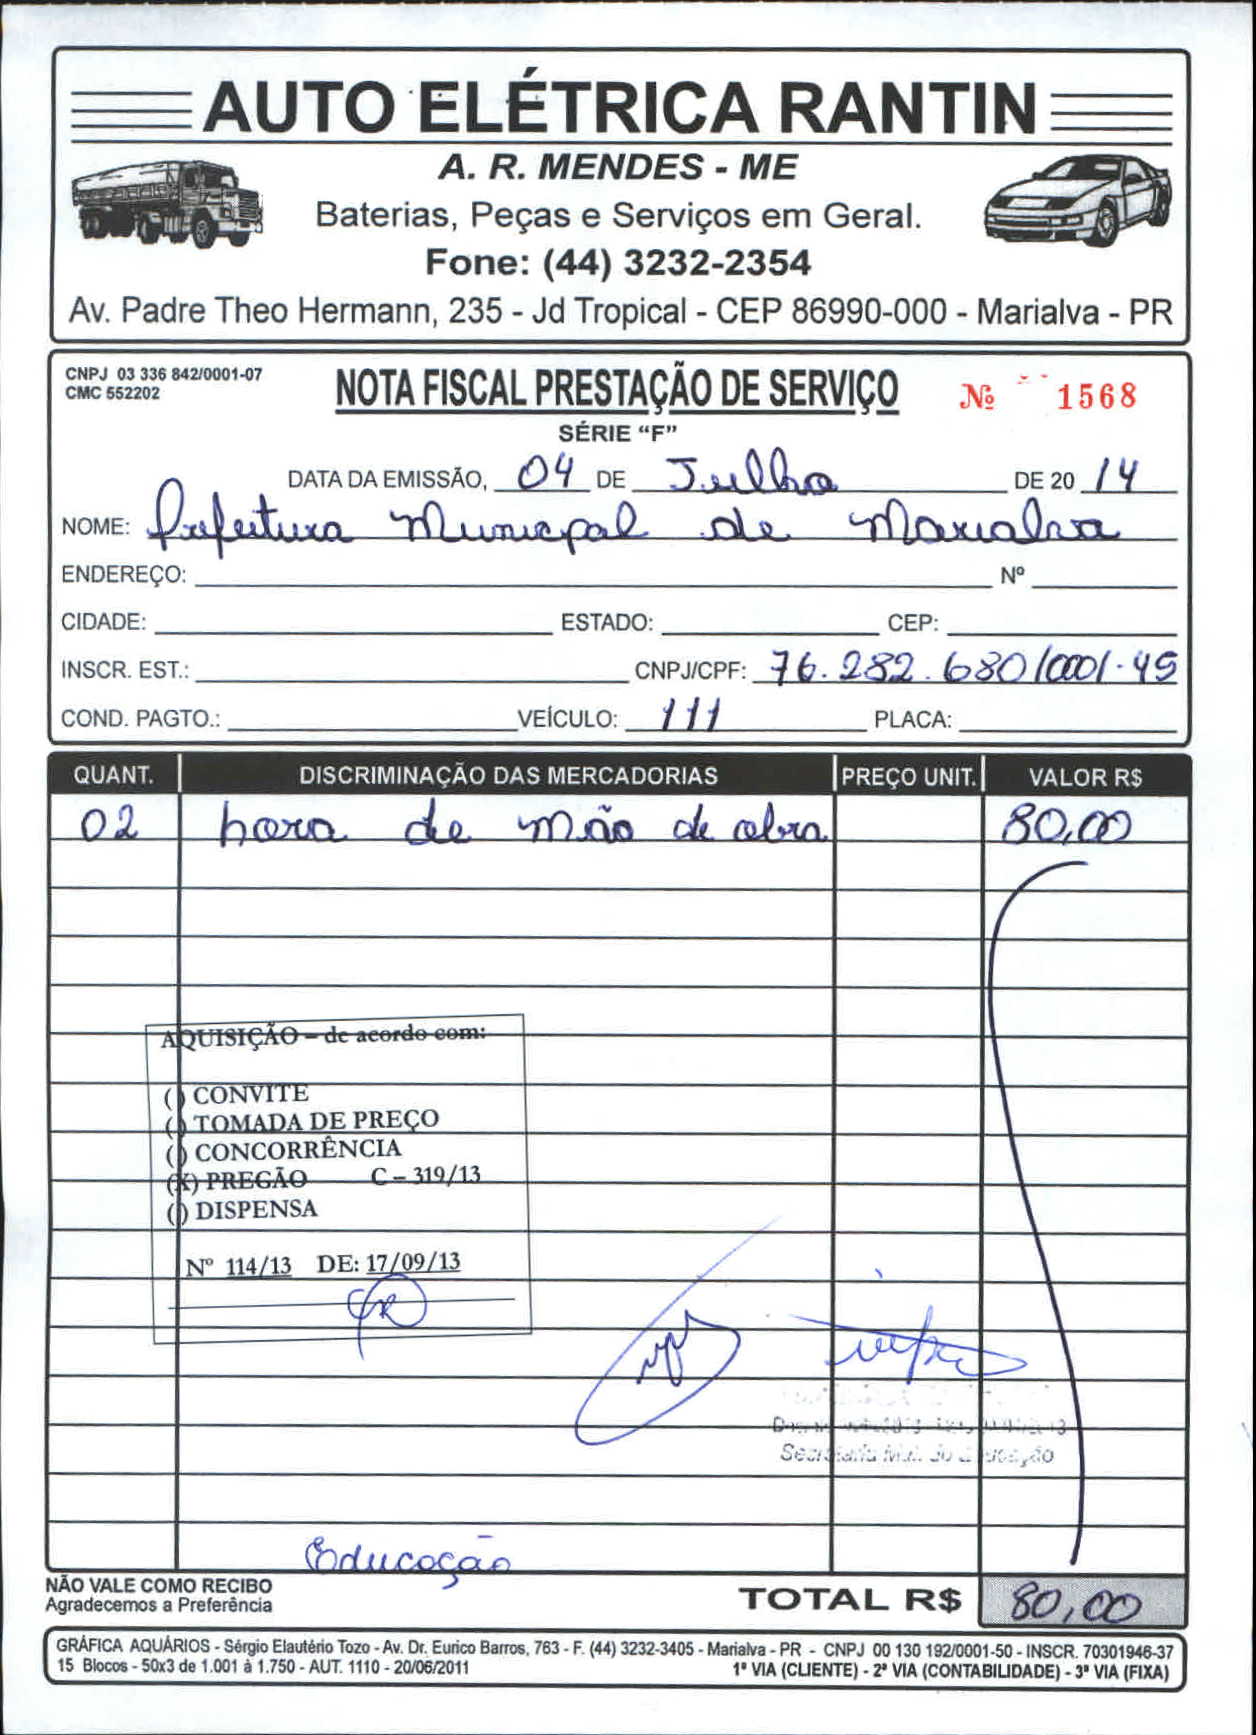 AUTO ELÉTRICA RANTIN
A. R. MENDES - ME
Baterias, Peças e Serviços em Geral.
Fone: (44) 3232-2354
Av. Padre Theo Hermann, 235 - Jd Tropical - CEP 86990-000 - Marialva - PR
CNPJ 03 336 842/0001-07
CMC 552202
NOTA FISCAL PRESTAÇÃO DE SERVIÇO
Nº 1568
SÉRIE “F”
DATA DA EMISSÃO, 04 DE Julho DE 20 14
NOME: Prefeitura Municpal de Marialva
ENDEREÇO: Nº
CIDADE: ESTADO: CEP:
INSCR. EST.: CNPJ/CPF: 76.282.680/0001-45
COND. PAGTO.: VEÍCULO: 111 PLACA:
QUANT. DISCRIMINAÇÃO DAS MERCADORIAS PREÇO UNIT. VALOR R$
02 hora de mão de obra 80,00
AQUISIÇÃO – de acordo com:
( ) CONVITE
( ) TOMADA DE PREÇO
( ) CONCORRÊNCIA
(X) PREGÃO C – 319/13
( ) DISPENSA
Nº 114/13 DE: 17/09/13
Educação
NÃO VALE COMO RECIBO
Agradecemos a Preferência
TOTAL R$ 80,00
GRÁFICA AQUÁRIOS - Sérgio Elautério Tozo - Av. Dr. Eurico Barros, 763 - F. (44) 3232-3405 - Marialva - PR - CNPJ 00 130 192/0001-50 - INSCR. 70301946-37
15 Blocos - 50x3 de 1.001 à 1.750 - AUT. 1110 - 20/06/2011 1ª VIA (CLIENTE) - 2ª VIA (CONTABILIDADE) - 3ª VIA (FIXA)